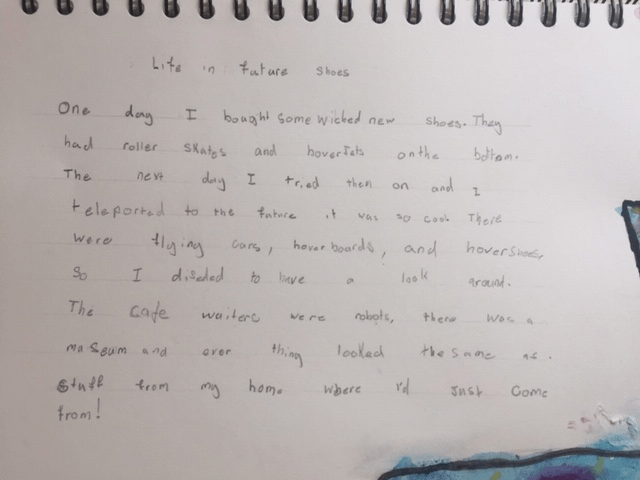 Life in future shoes
One day I bought some wicked new shoes. They
had roller skates and hoverjets on the bottom.
The next day I tried them on and I
teleported to the future it was so cool There
were flying cars, hoverboards, and hovershoes,
so I diseded to have a look around.
The cafe waiters were robots, there was a
maseum and over thing looked the same as.
stuff from my home where I'd just come
from!